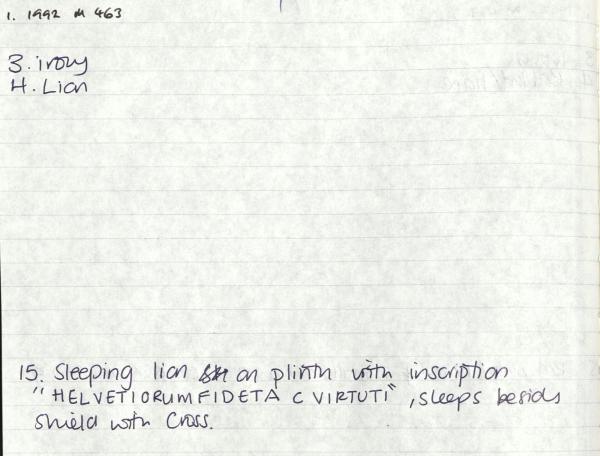 1. 1992 M 463
3. ivory
4. Lion
15. Sleeping lion on plinth with inscription
"HELVETIORUM FIDETA C VIRTUTI", sleeps beside
shield with Cross.